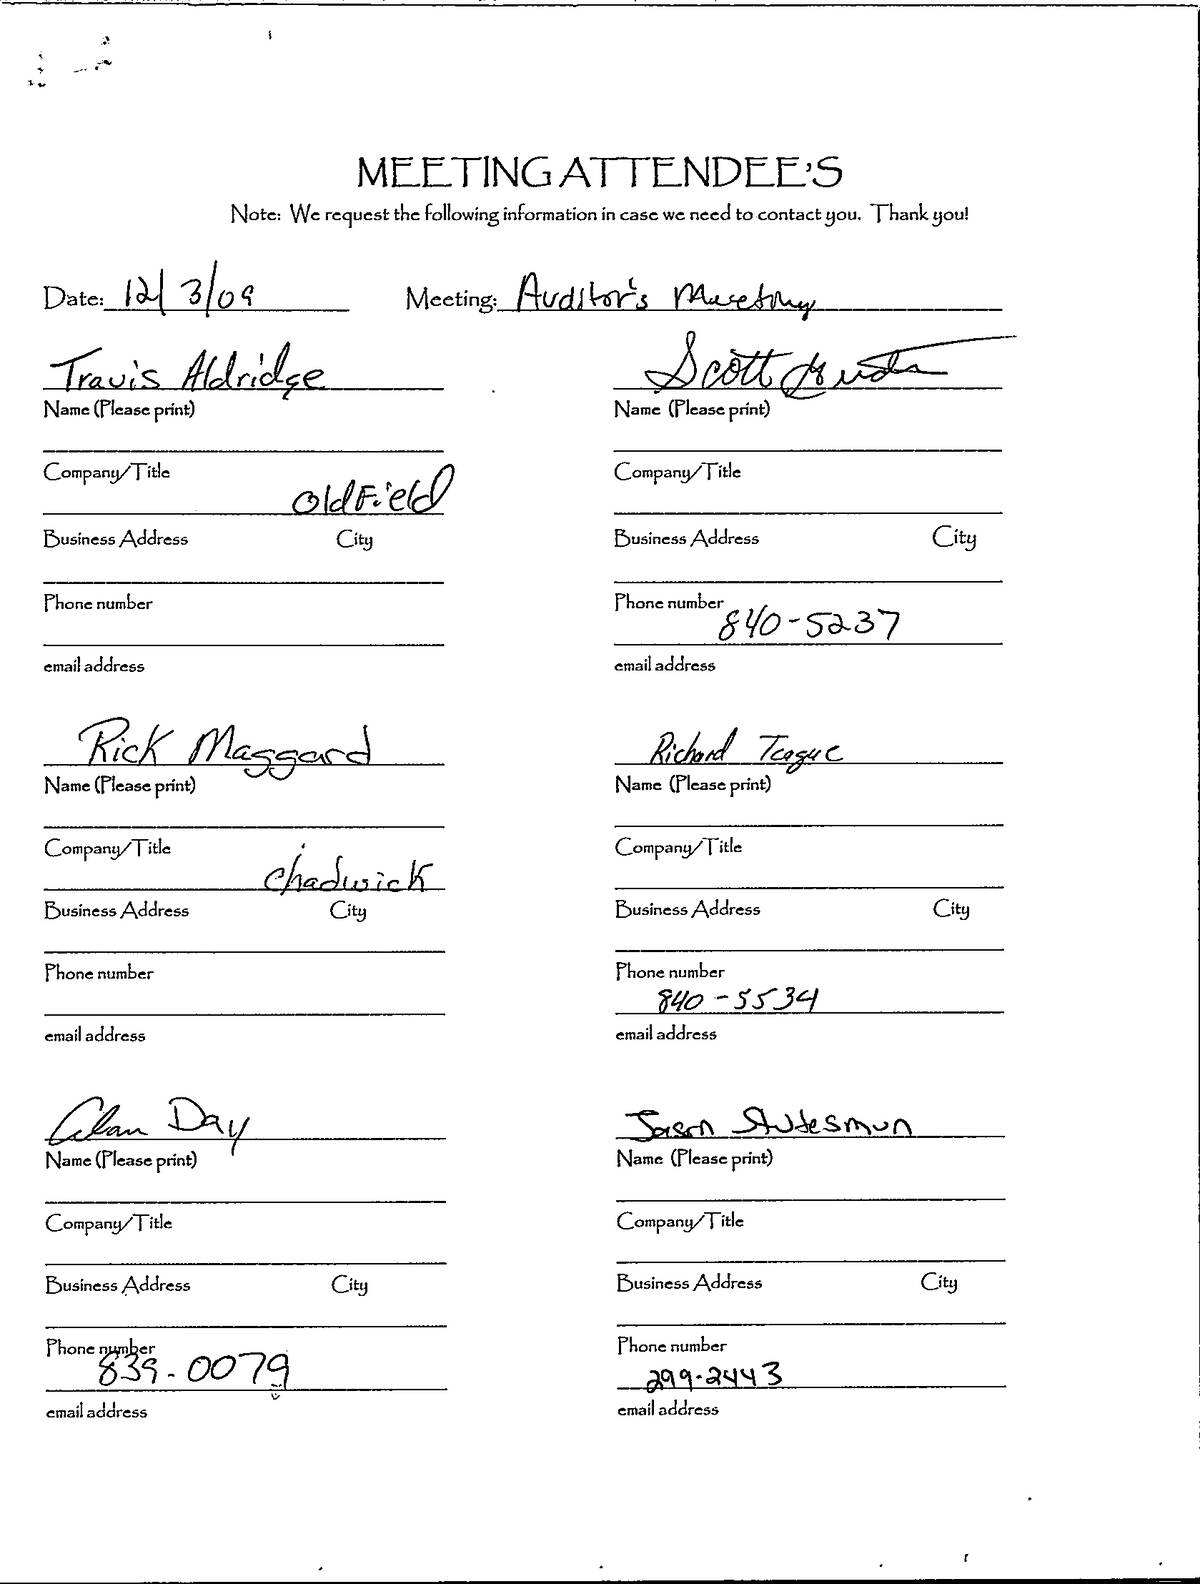 MEETING ATTENDEE'S
Note: We request the following information in case we need to contact you. Thank you!
Date: 12/3/09 Meeting: Auditor's Meeting
Travis Aldridge
Name (Please print)
Company/Title
Oldfield
Business Address City
Phone number
email address
Scott
Name (Please print)
Company/Title
Business Address City
Phone number
840-5237
email address
Rick Maggard
Name (Please print)
Company/Title
Chadwick
Business Address City
Phone number
email address
Richard Teague
Name (Please print)
Company/Title
Business Address City
Phone number
840-5534
email address
Alan Day
Name (Please print)
Company/Title
Business Address City
Phone number
839-0079
email address
Jason Stutesmun
Name (Please print)
Company/Title
Business Address City
Phone number
299-2443
email address